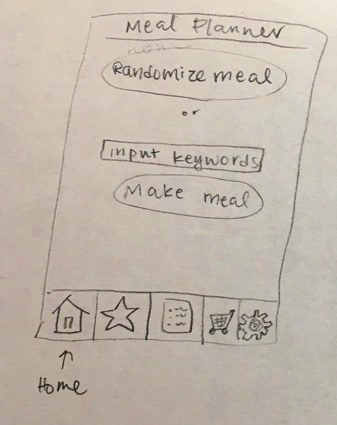 Meal Planner
Randomize meal
or
input keywords
Make meal
Home